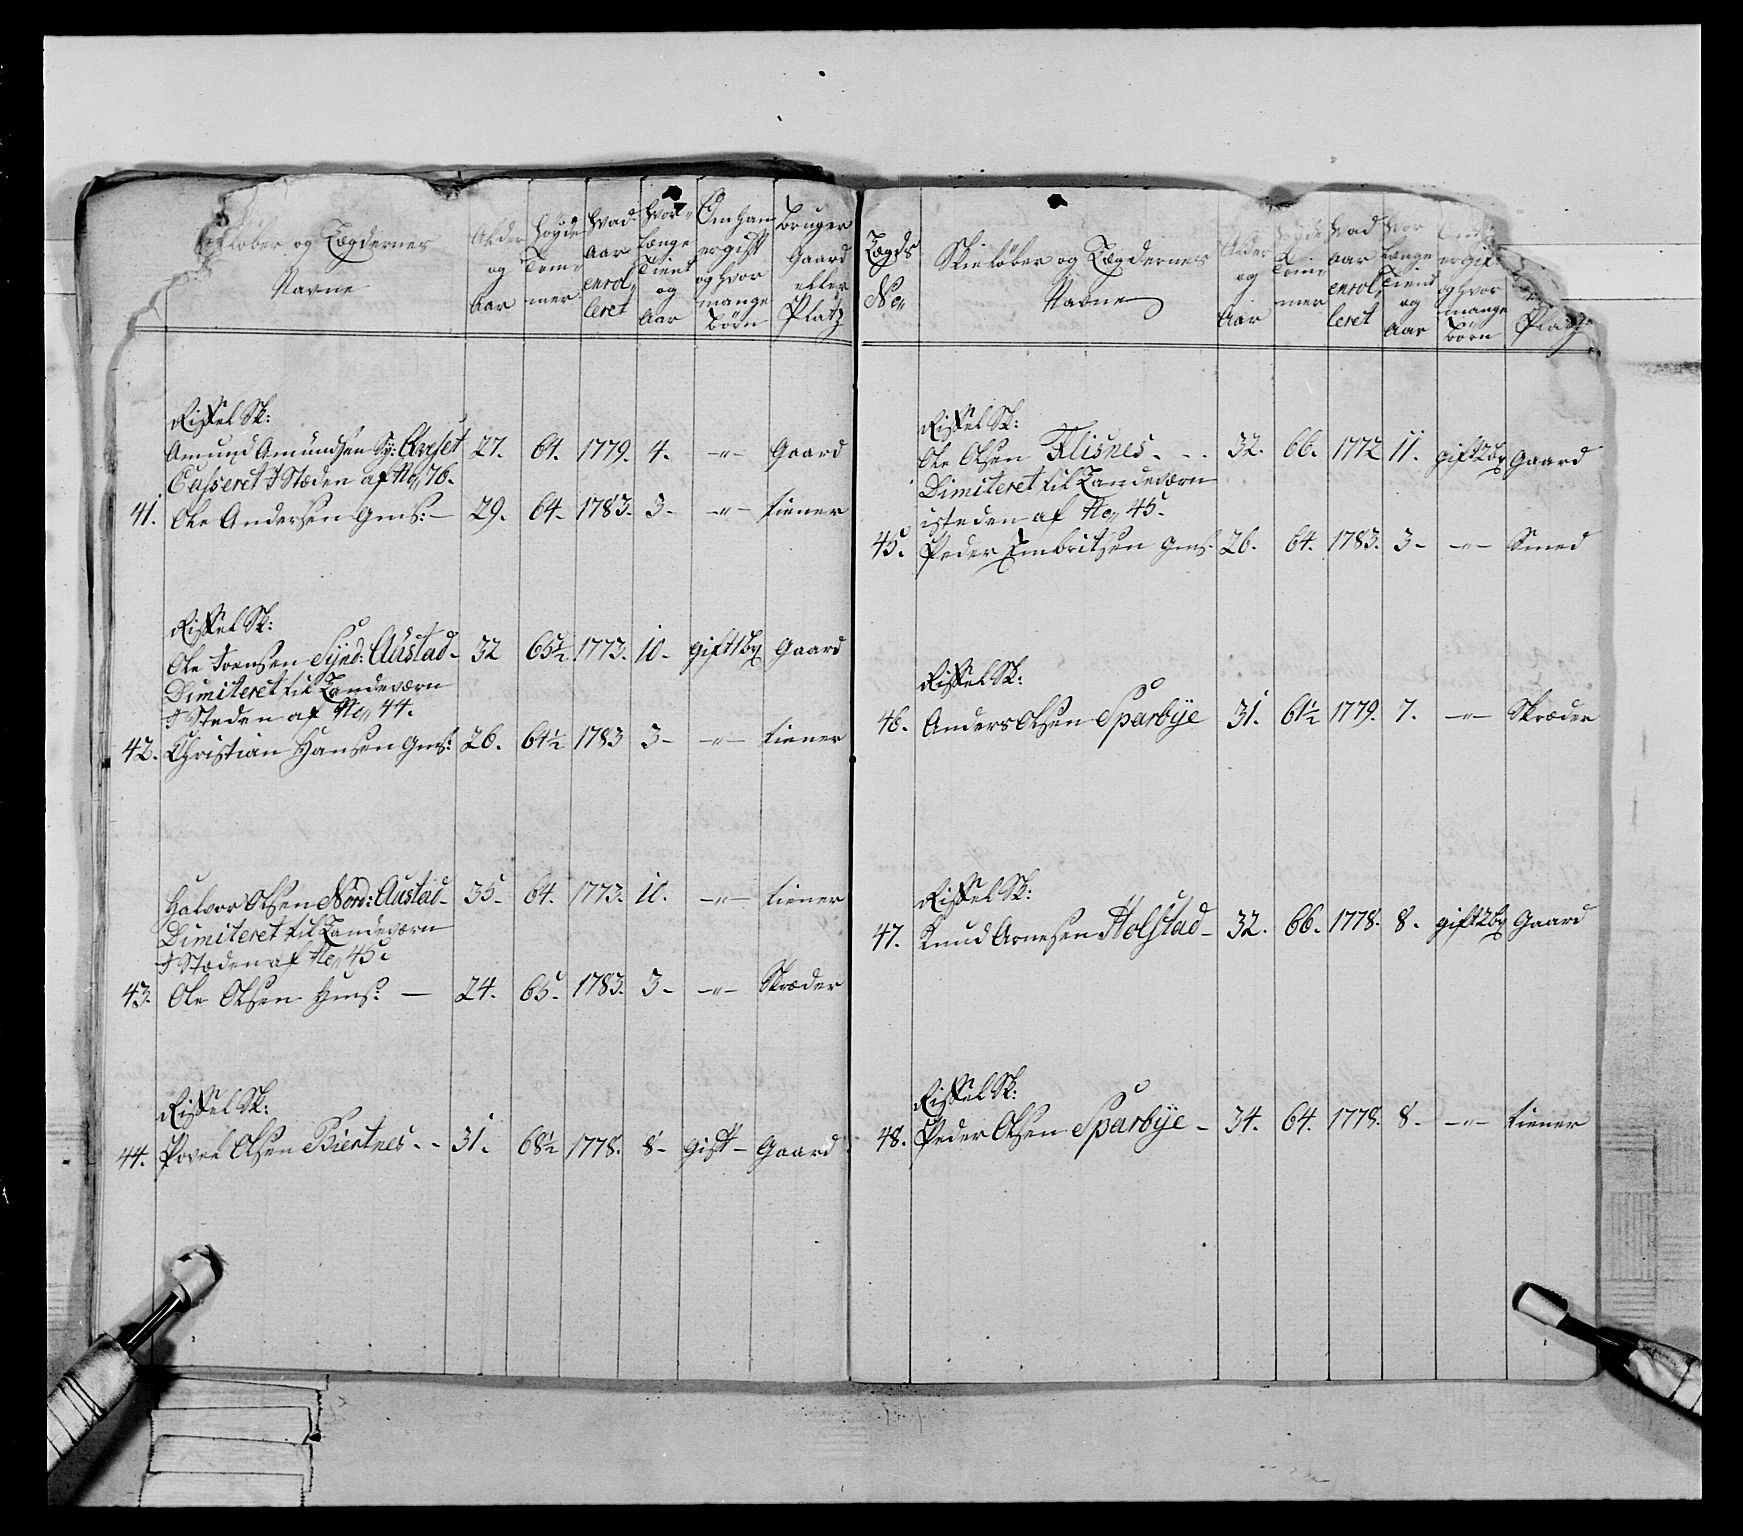 løber og Lægdernes
Navne
Alder og Aar
Høyde Tommer
Hvad Aar enrolleret
Hvor længe Tient og Aar
Om han er gift og hvor mange børn
bruger Gaard eller Platz
Riffel Sk:
Amund Amundsen Sy: Arset 27. 64. 1779. 4. -"- Gaard
Casseret I Stæden af No 76.
41. Ole Andersen Gms: – 29. 64. 1783. 3 – -"- tiener
Riffel Sk:
Ole Joensen Synd: Austad – 32 65½ 1773. 10 – gift 1 bø Gaard
Dimiteret til Landeværn
I Steden af No 44.
42. Christian Hansen Gms: 26. 64½ 1783 3 – -"- tiener
Halvor Olsen Nord: Austad – 35. 64. 1773. 10. -"- tiener
Dimiteret til Landeværn
I Stæden af No 45
43. Ole Olsen Hms: – 24. 65. 1783. 3 – -"- Skræder
Riffel Sk:
44. Povel Olsen Biertnes - - 31. 68½ 1778. 8 – gift – Gaard
Lægds No
Skieløber og Lægdernes
Navne
Alder og Aar
Høyde Tommer
Hvad Aar enrolleret
Hvor længe Tient og Aar
er gift og hvor mange børn
Platz
Riffel Sk:
Ole Olsen Flisnes. - . 32. 66. 1772 11. gift 2 bø Gaard
Dimiteret til Landeværn
isteden af No 45.
45. Peder Embritsen Gms. 26. 64. 1783. 3 – -"- Smed
Riffel Sk:
46. Anders Olsen Sparbye 31. 61½ 1779. 7. -"- Skræder
Riffel Sk:
47. Knud Arnesen Holstad – 32. 66. 1778. 8. gift 2 bø Gaard
Riffel Sk:
48. Peder Olsen Sparbye – 34. 64. 1778. 8 – -"- tiener